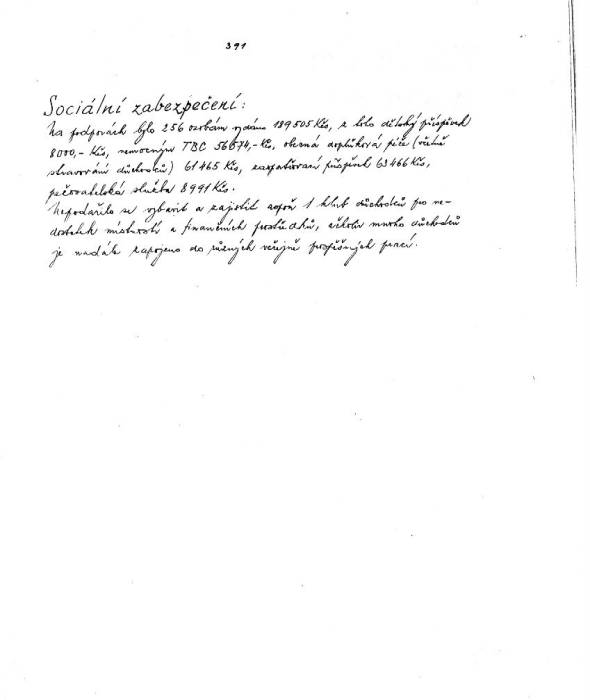 391
Sociální zabezpečení:
Na podporách bylo 256 osobám vydáno 189505 Kčs, z toho dětský příspěvek
8000,- Kčs, nemocným TBC 56674,-Kčs, obecná doplňková péče (včetně
stravování důchodců) 61465 Kčs, zaopatřovací příspěvek 63466 Kčs,
pečovatelská služba 8991 Kčs.
Nepodařilo se vybavit a zajistit aspoň 1 klub důchodců pro ne-
dostatek místností a finančních prostředků, ačkoliv mnoho důchodců
je nadále zapojeno do různých veřejně prospěšných prací.